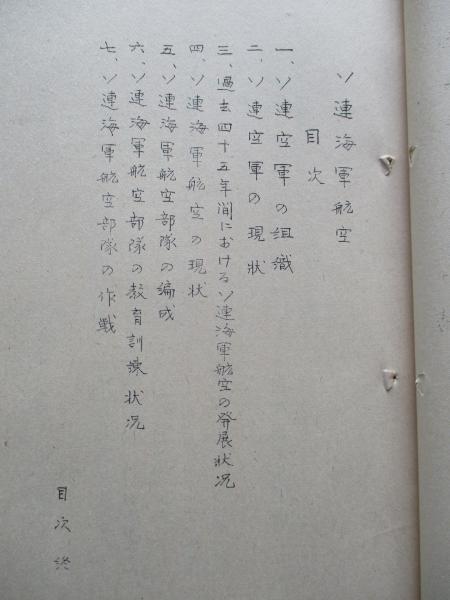 ソ連海軍航空
目次
一、ソ連空軍の組織
二、ソ連空軍の現状
三、過去四十五年間におけるソ連海軍航空の発展状況
四、ソ連海軍航空の現状
五、ソ連海軍航空部隊の編成
六、ソ連海軍航空部隊の教育訓練状況
七、ソ連海軍航空部隊の作戦
目次終